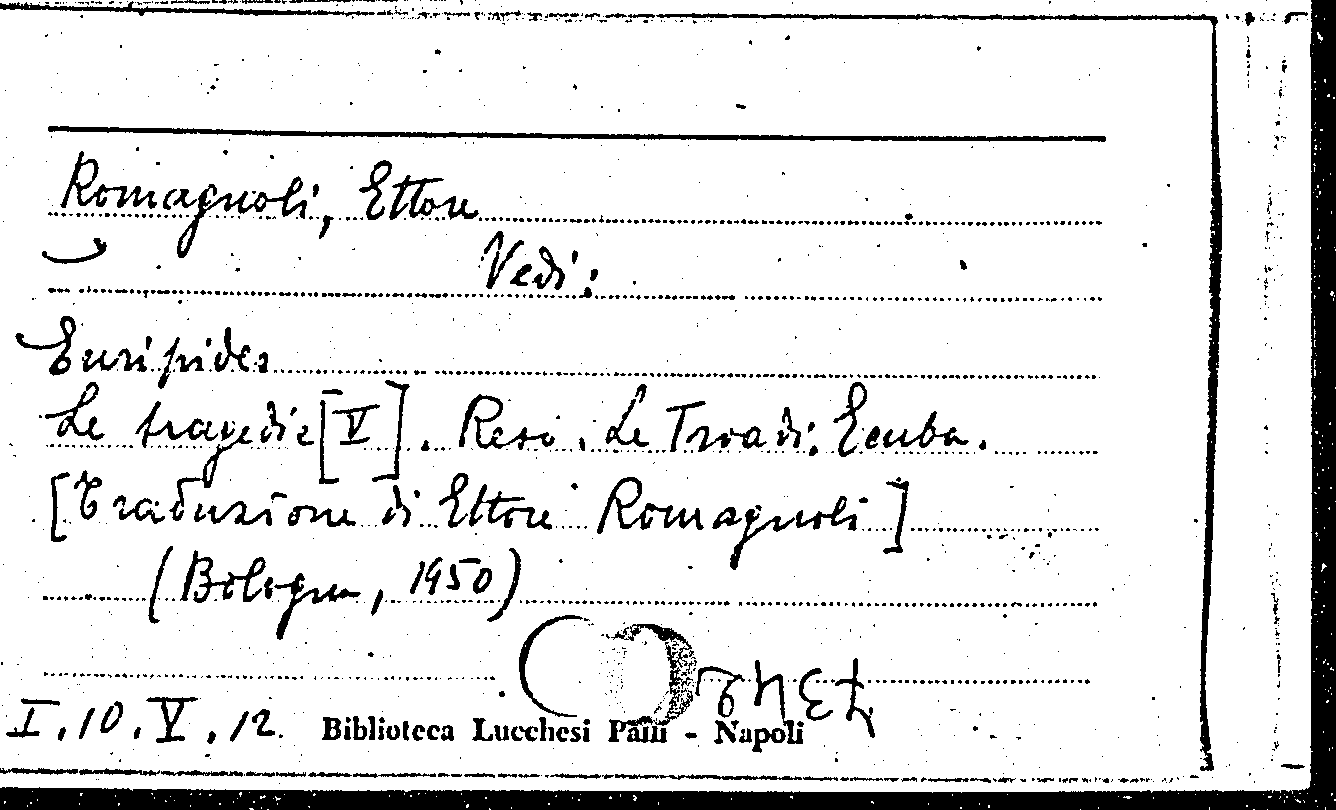 Romagnoli, Ettore
Vedi:
Euripides
Le tragedie [V]. Reso. Le Troadi. Ecuba.
[Traduzione di Ettore Romagnoli]
(Bologna, 1950)
I.10.V.12. Biblioteca Lucchesi Palli - Napoli